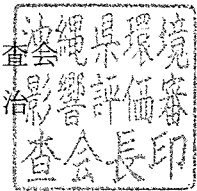 沖縄県環境
影響評価審
査会長印
査会
治